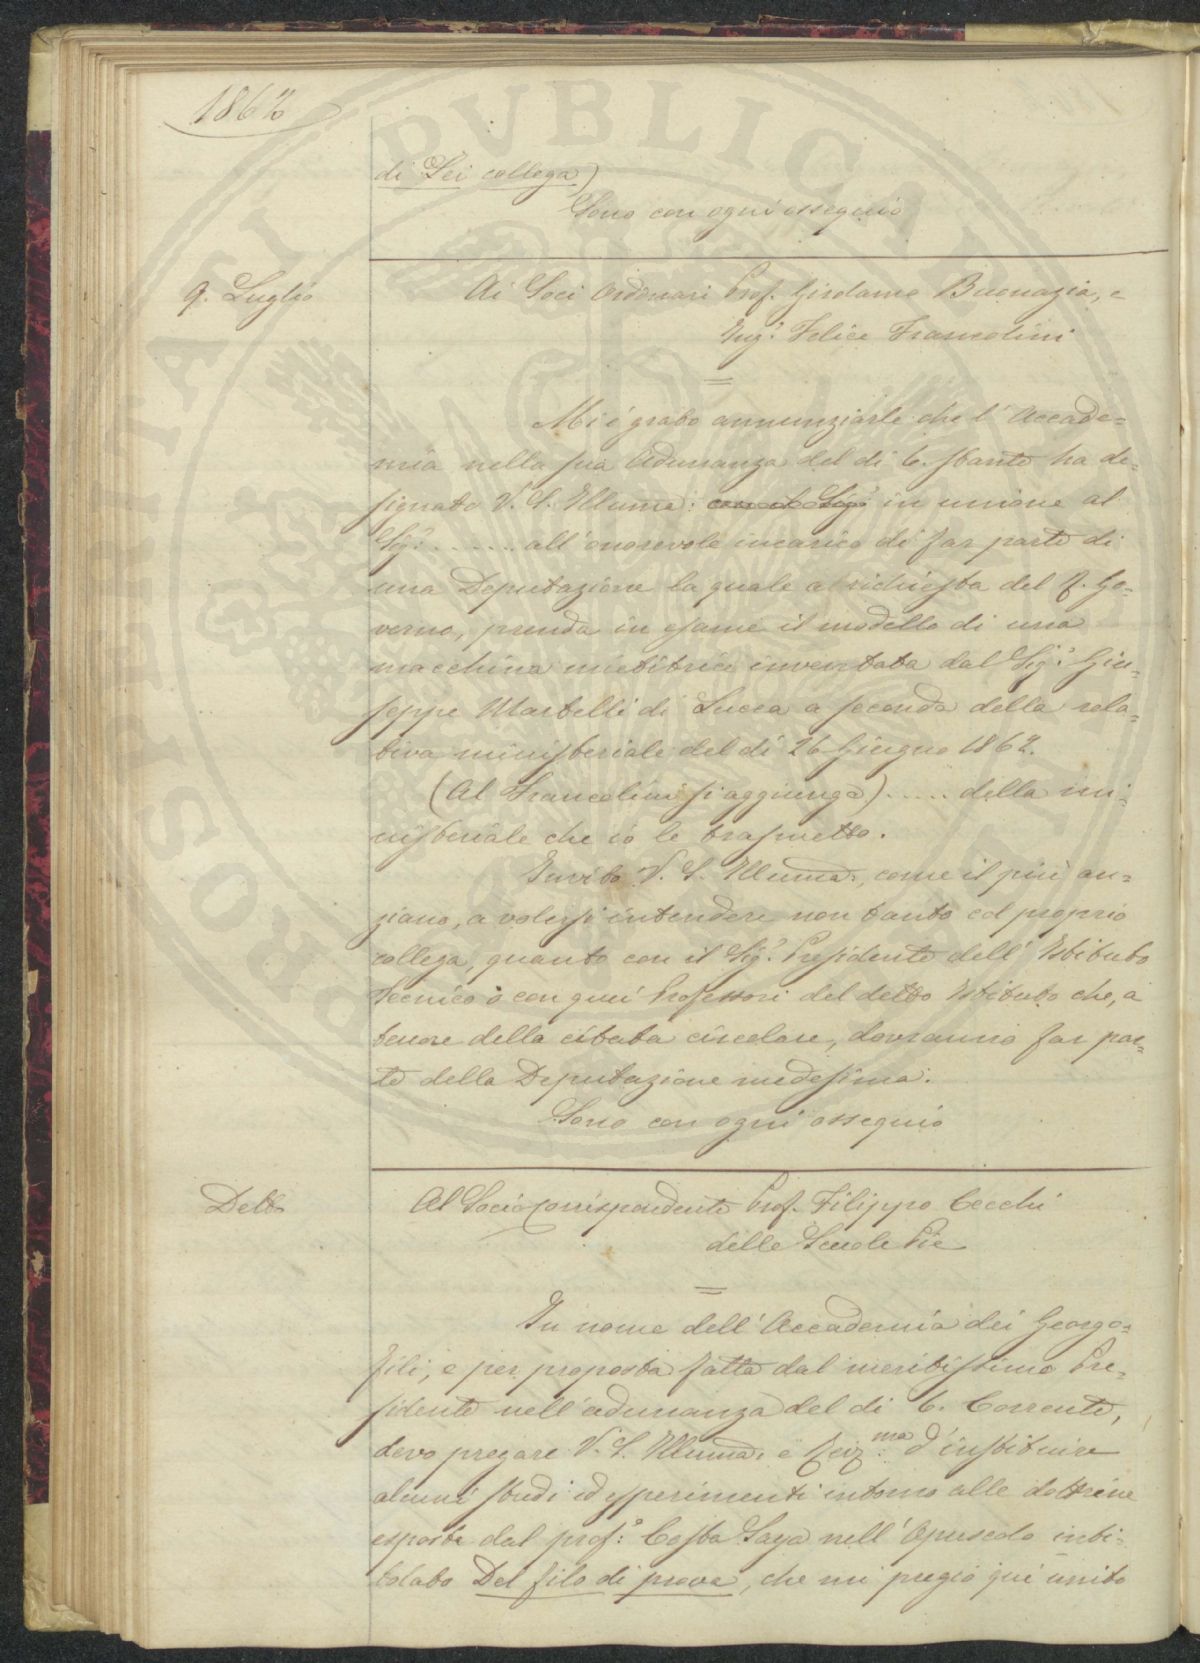 1862
di Lei collega)
Sono con ogni ossequio
9. Luglio
Ai Soci Ordinari Prof. Girolamo Buonazia, e
Ing.e Felice Francolini
=
Mi è grato annunziarle che l'Accade=
mia nella sua Adunanza del dì 6. stante ha de=
signato V. S. Illuma: con il Sig.r in unione al
Sig:r ...... all'onorevole incarico di far parte di
una Deputazione la quale a richiesta del R. Go=
verno, prenda in esame il modello di una
macchina mietitrice inventata dal Sig.r Giu=
seppe Martelli di Lucca a seconda della rela=
tiva ministeriale del dì 26 Giugno 1862.
(Al Francolini si aggiunga) ..... della mi=
nisteriale che io le trasmetto.
Invito V. S. Illuma., come il più an=
ziano, a volersi intendere non tanto col proprio
collega, quanto con il Sig.r Presidente dell'Istituto
Tecnico o con quei Professori del detto Istituto che, a
tenore della citata circolare, dovranno far par=
te della Deputazione medesima.
Sono con ogni ossequio
Detto
Al Socio Corrispondente Prof. Filippo Cecchi
delle Scuole Pie
=
In nome dell'Accademia dei Georgo=
fili, e per proposta fatta dal meritissimo Pre=
sidente nell'adunanza del dì 6. Corrente,
devo pregare V. S. Illuma. e Rev:ma d'instituire
alcuni studi ed esperimenti intorno alle dottrine
esposte dal prof:e Costa Saya nell'Opuscolo inti=
tolato Del filo di prova, che mi pregio qui unito
PROSPERITATI PUBLICAE